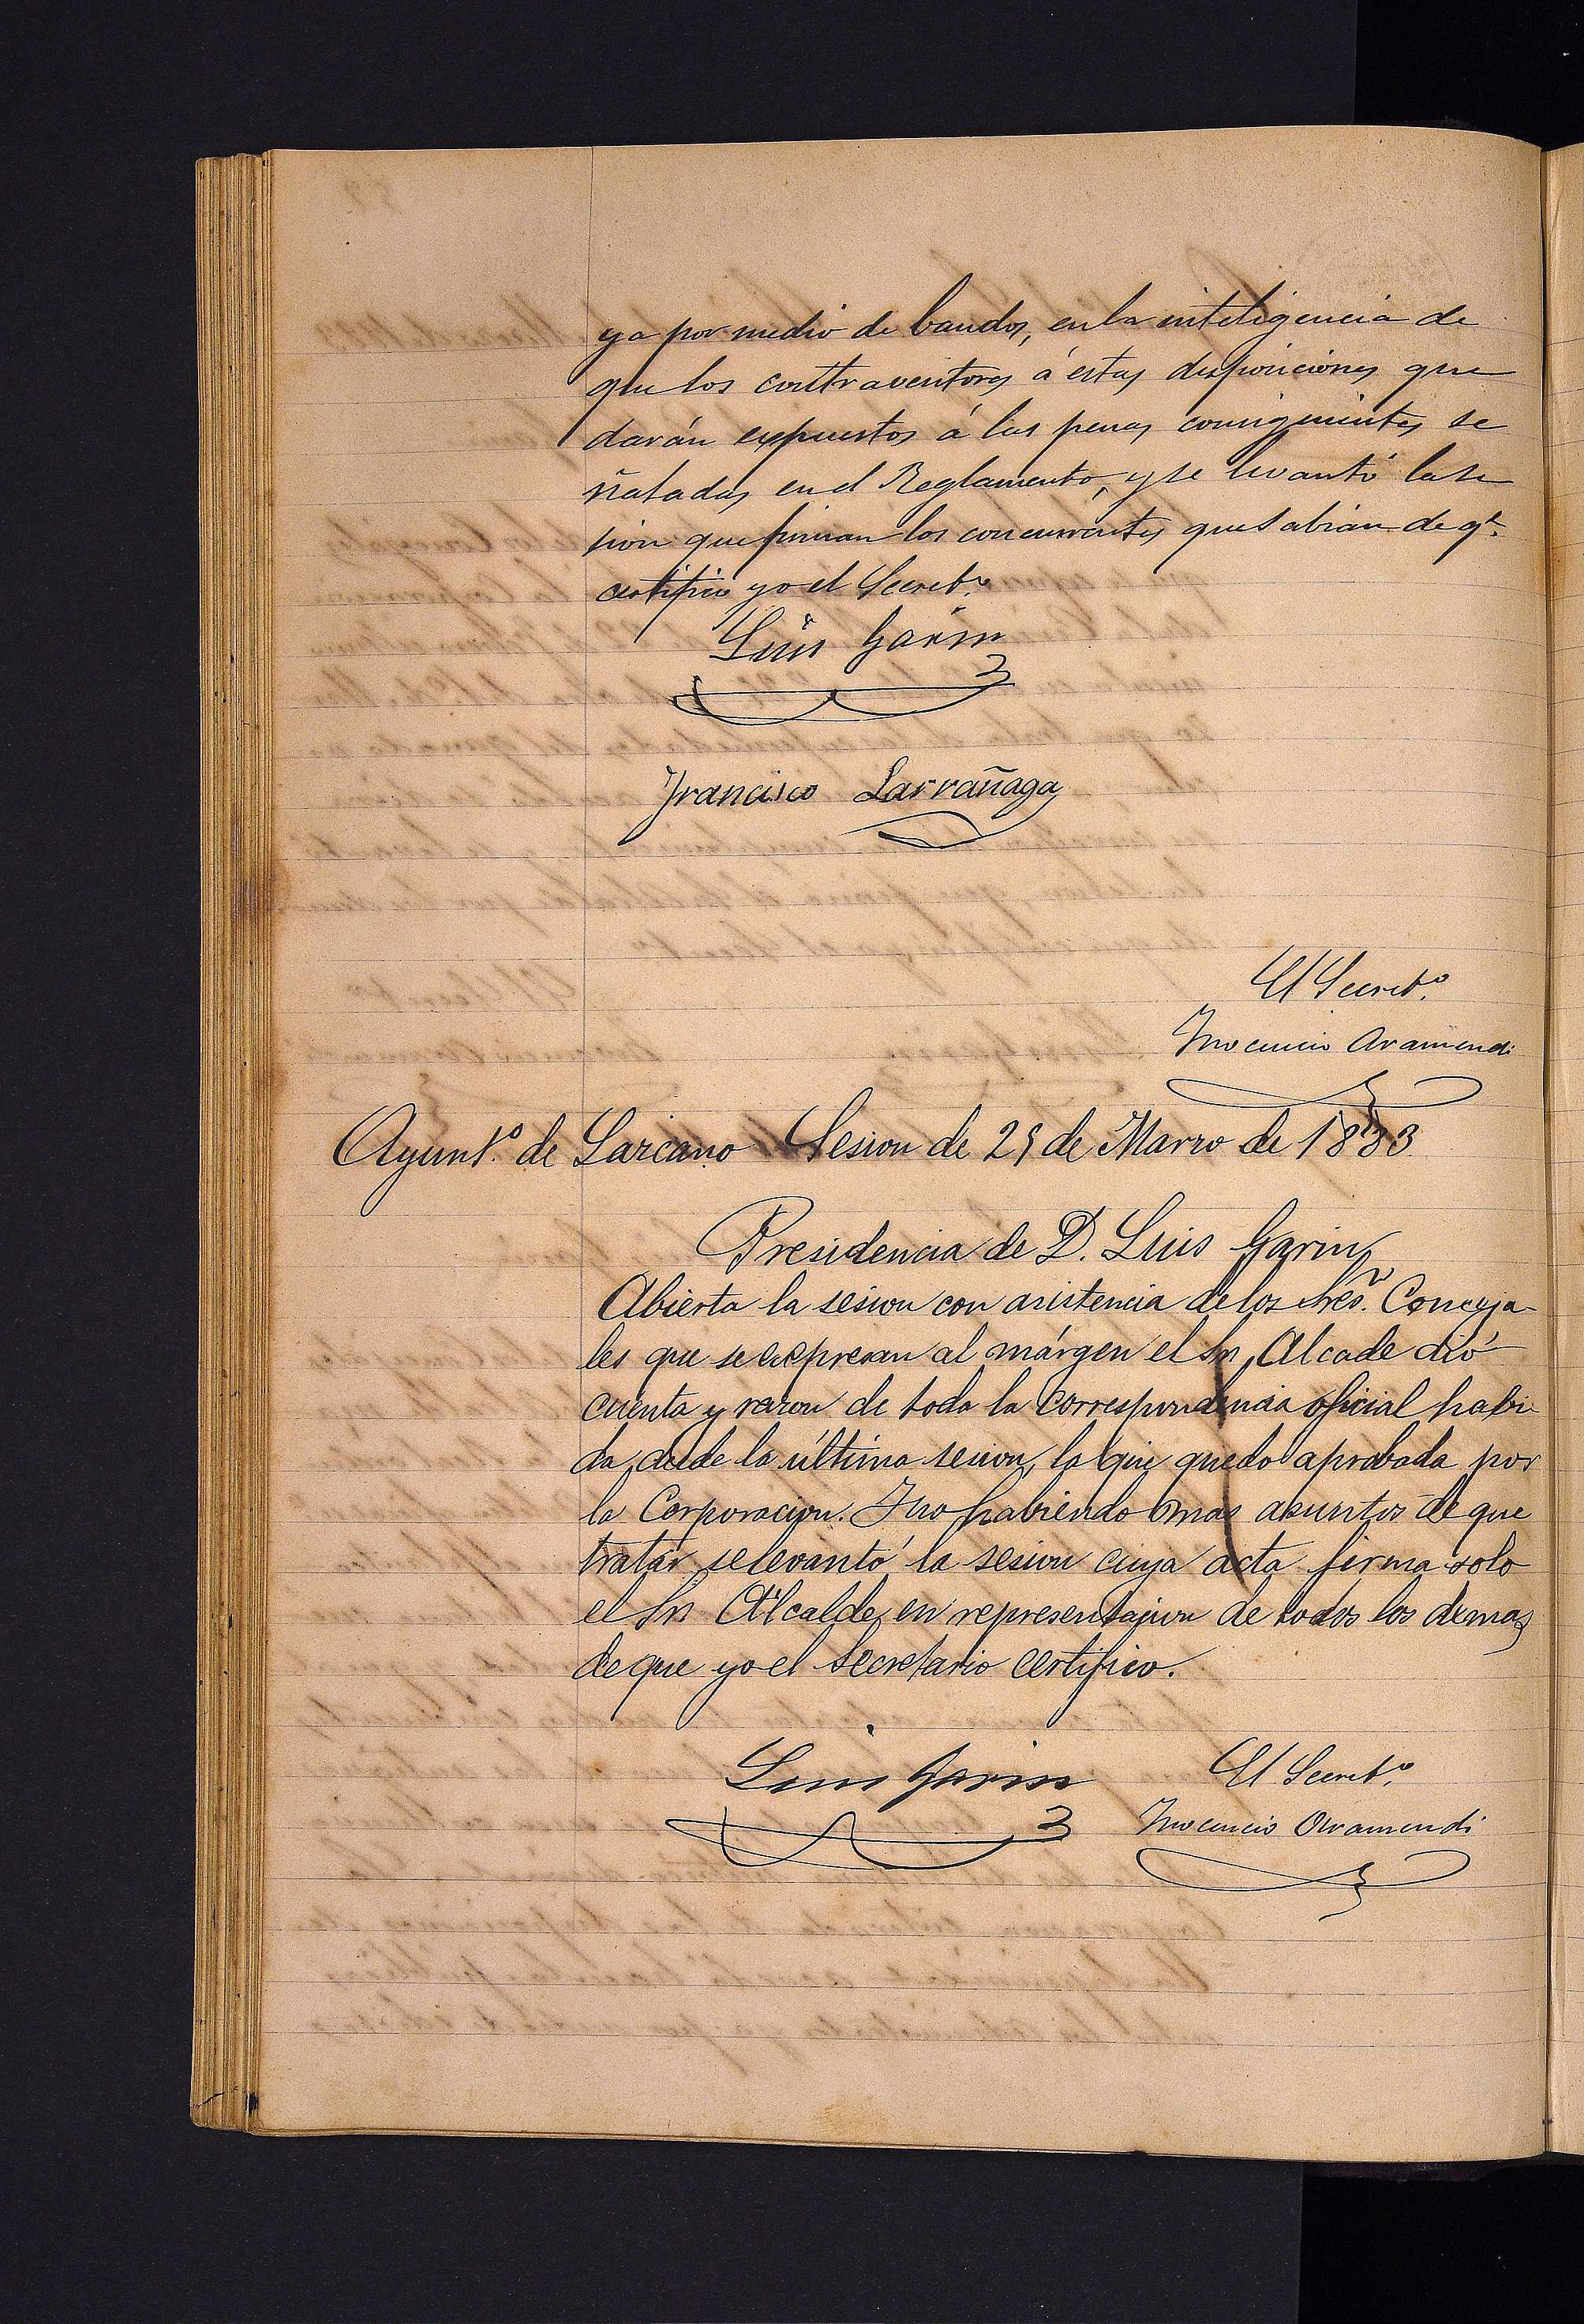 ya por medio de bandos, en la inteligencia de
que los contraventores á estas disposiciones que
darán expuestos á las penas consiguientes se
ñaladas en el Reglamento, y se levantó la se
sion que firman los concurrentes que sabian de qe.
certifico yo el Secreto.
Luis Garin
Francisco Larrañaga
El Secreto.
Inocencio Aramendi
Ayunto. de Lazcano Sesion de 25 de Marzo de 1883
Presidencia de D. Luis Garin
Abierta la sesion con asistencia de los Sres. Conceja-
les que se expresan al márgen el Sr. Alcade dió
cuenta y razon de toda la correspondencia oficial habi-
da desde la última sesion, la que quedo aprobada por
la Corporacion. I no habiendo mas asuntos de que
tratar se levantó la sesion cuya acta firma solo
el Sr. Alcalde en representacion de todos los demas
de que yo el Secretario certifico.
Luis Garin El Secreto.
Inocencio Aramendi